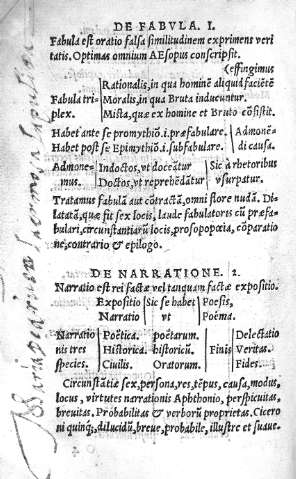 DE FABVLA. I.
Fabula est oratio falsa similitudinem exprimens veri
tatis. Optimas omnium AEsopus conscripsit.
(effingimus
Rationalis, in qua hominē aliquid faciētē
Fabula tri- Moralis, in qua Bruta inducuntur.
plex. Mista, quæ ex homine et Bruto cōsistit.
Habet ante se promythiō. i. præfabulare. Admonē-
Habet post se Epimythiō. i. subfabulare. di causa.
Admone- Indoctos, vt doceātur Sic à rhetoribus
mus. Doctos, vt reprehēdātur vsurpatur.
Tratamus fabulā aut cōtractā, omni flore nudā. Di-
latatā, quæ fit sex locis, laude fabulatoris cū præfa-
bulari, circunstātiarū locis, prosopopœia, cōparatio
ne, contrario & epilogo.
DE NARRATIONE. 2.
Narratio est rei factæ vel tanquam factæ expositio.
Expositio Sic se habet Poesis,
Narratio vt Poëma.
Narratio Poëtica. poëtarum. Delectatio
nis tres Historica. historicū. Finis Veritas.
species. Ciuilis. Oratorum. Fides.
Circunstātiæ sex, persona, res, tēpus, causa, modus,
locus, virtutes narrationis Aphthonio, perspicuitas,
breuitas. Probabilitas & verborū proprietas. Cicero
ni quinq;, dilucidū, breue, probabile, illustre et suaue.